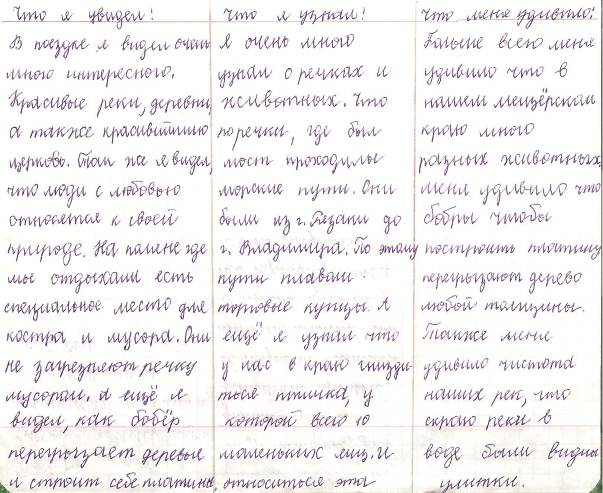 Что я увидел!
В поездке я видел очень
много интересного.
Красивые реки, деревни,
а также красивишию
церковь. Так же я видел,
что люди с любовью
относятся к своей
природе. На поляне где
мы отдыхали есть
специальное место для
костра и мусора. Они
не загрезняют речку
мусором. а ещё я
видел, как бобёр
перегрызает деревья
и строит себе платины,
Что я узнал!
Я очень много
узнал о речках и
животных. Что
по речки, где был
мост проходилы
морские пути. Они
были из г. Рязани до
г. Владимира. По этому
пути плавали
торговые купцы. А
ещё я узнал что
у нас в краю гнизди
ться птичка, у
которой всего 10
маленьких яиц. и
относиться эта
Что меня удивило:
Больше всего меня
удивило что в
нашем мещёрском
краю много
разных животных,
меня удивило что
бобры чтобы
построить платину
перегрызают дерево
любой толщины.
Также меня
удивило чистота
наших рек, что
скраю реки в
воде были видны
улитки.